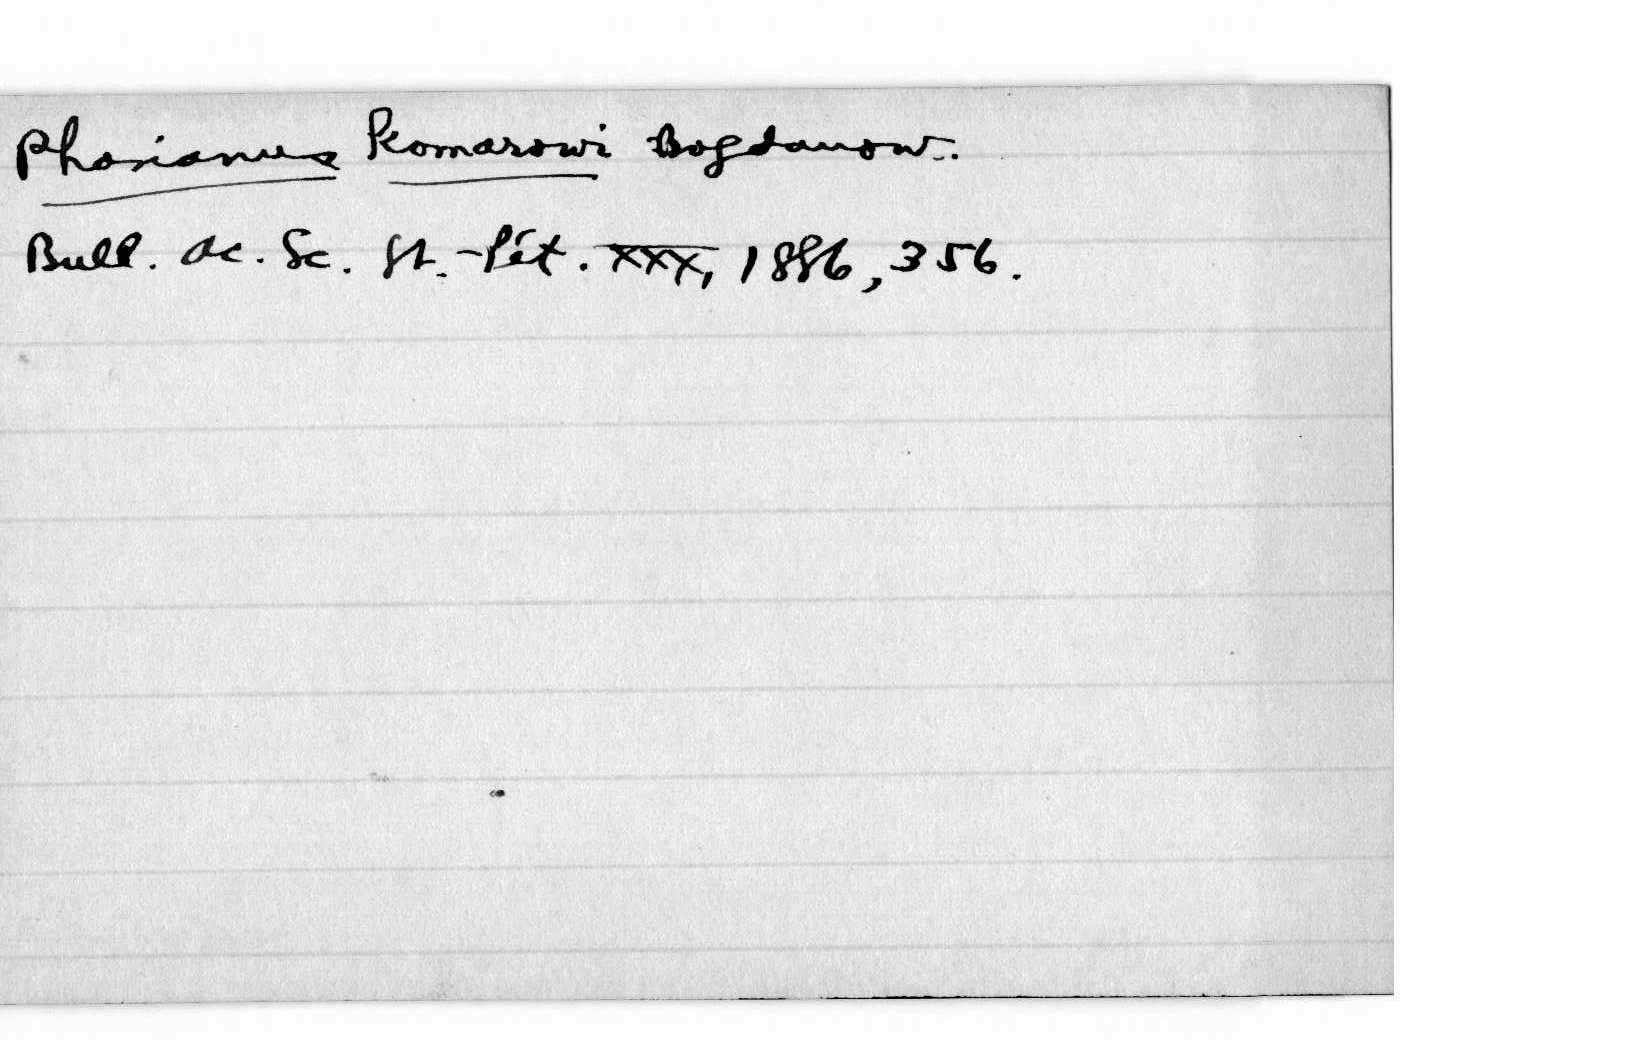 Phasianus Komarowi Bogdanow.
Bull. Ac. Sc. St.-Pét. XXX, 1886, 356.